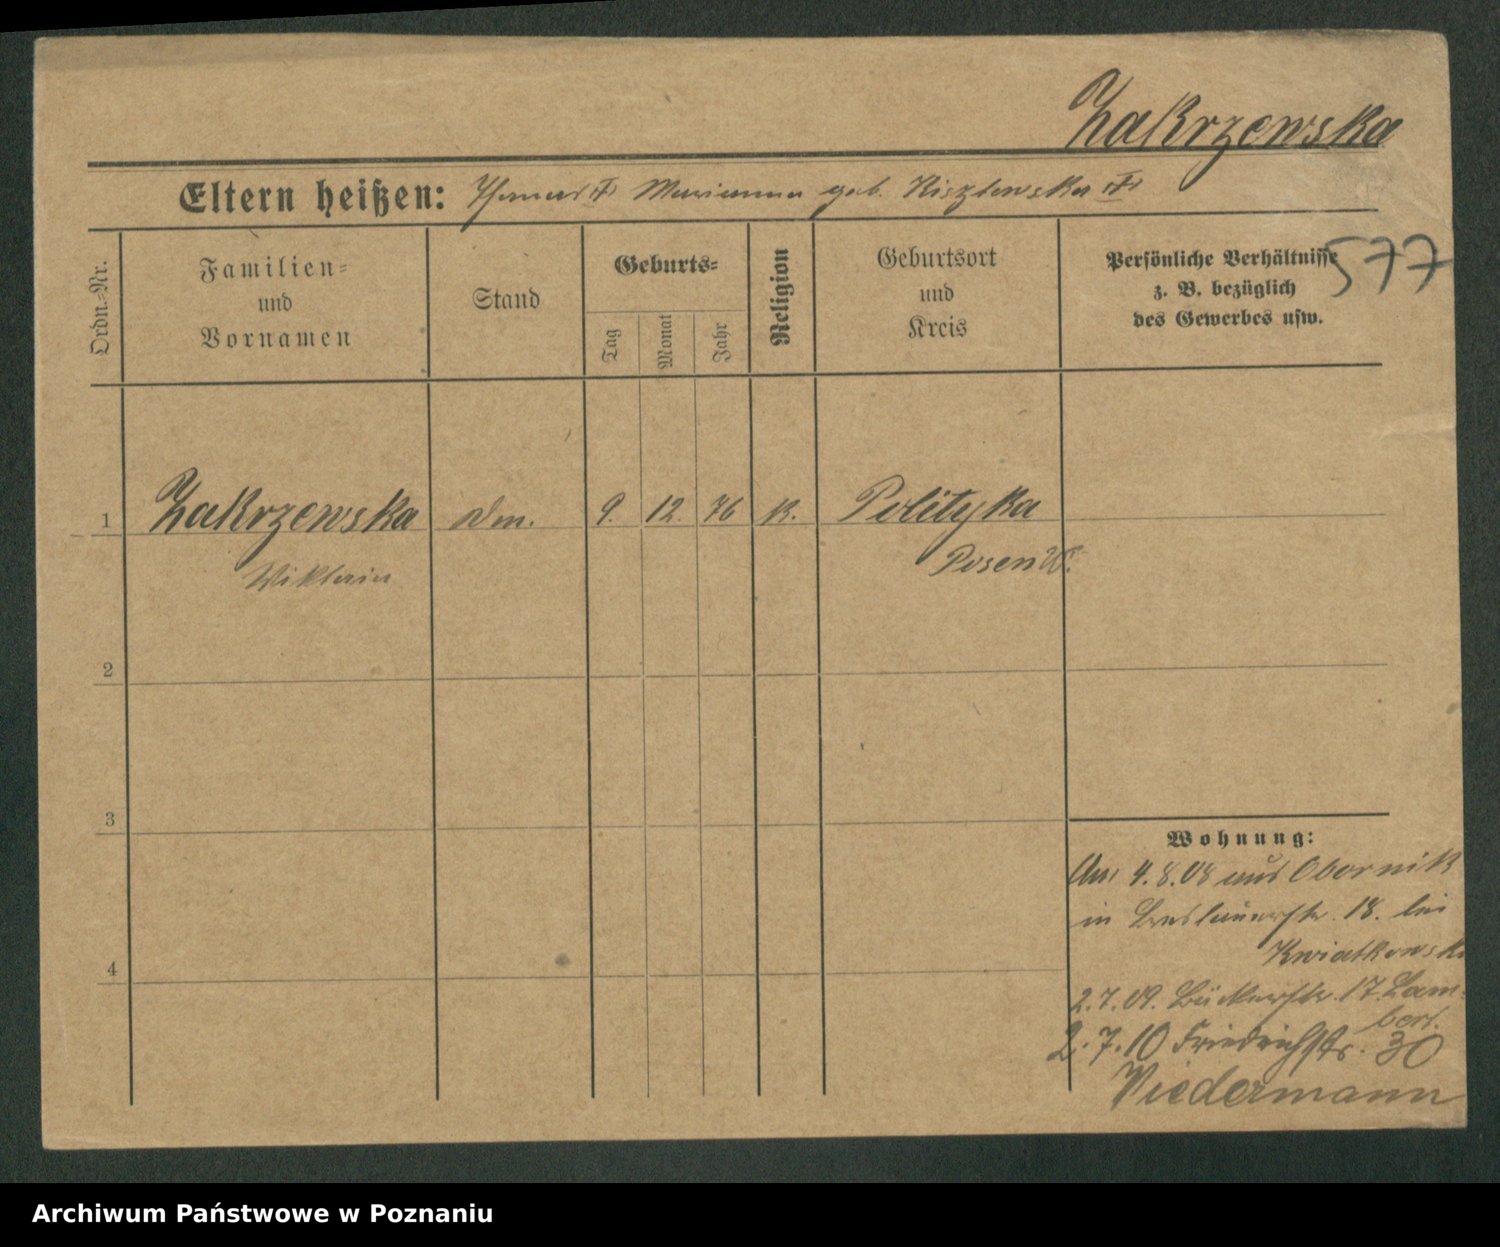 Zakrzewska
Eltern heißen: Thomas Marianna geb. Kiszlewska
577
Ordn.-Nr.
Familien-
und
Vornamen
Stand
Geburts-
Tag
Monat
Jahr
Religion
Geburtsort
und
Kreis
Persönliche Verhältnisse
z. B. bezüglich
des Gewerbes usw.
1 Zakrzewska 9. 12. 76 K. Polityka
Posen W.
2
3
4
Wohnung:
4.8.08 aus Obornik
in Breslauerstr. 18. bei
Kwiatkowski
2.7.09. Bäckerstr. 17. Lam-
bert.
2.7.10 Friedrichstr. 30
Niedermann
Archiwum Państwowe w Poznaniu